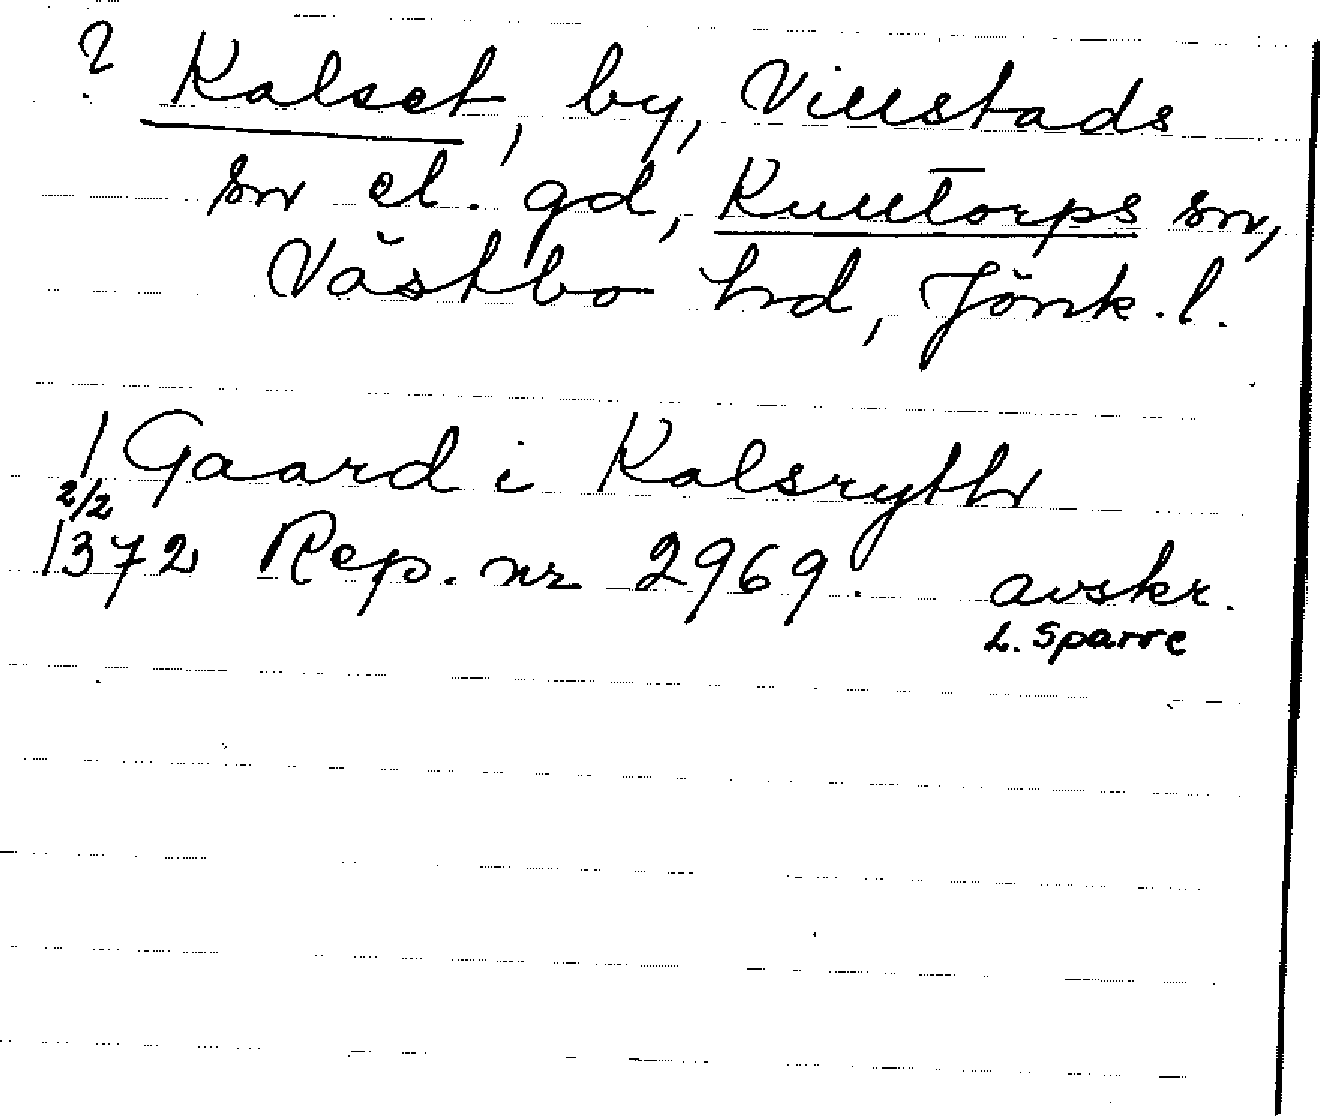 ? Kalset, by, Villstads
sn el. gd, Kulltorps sn,
Västbo hd, Jönk. l.
1 Gaard i Kalsrythr
2/2
1372 Rep. nr 2969. avskr.
L. Sparre